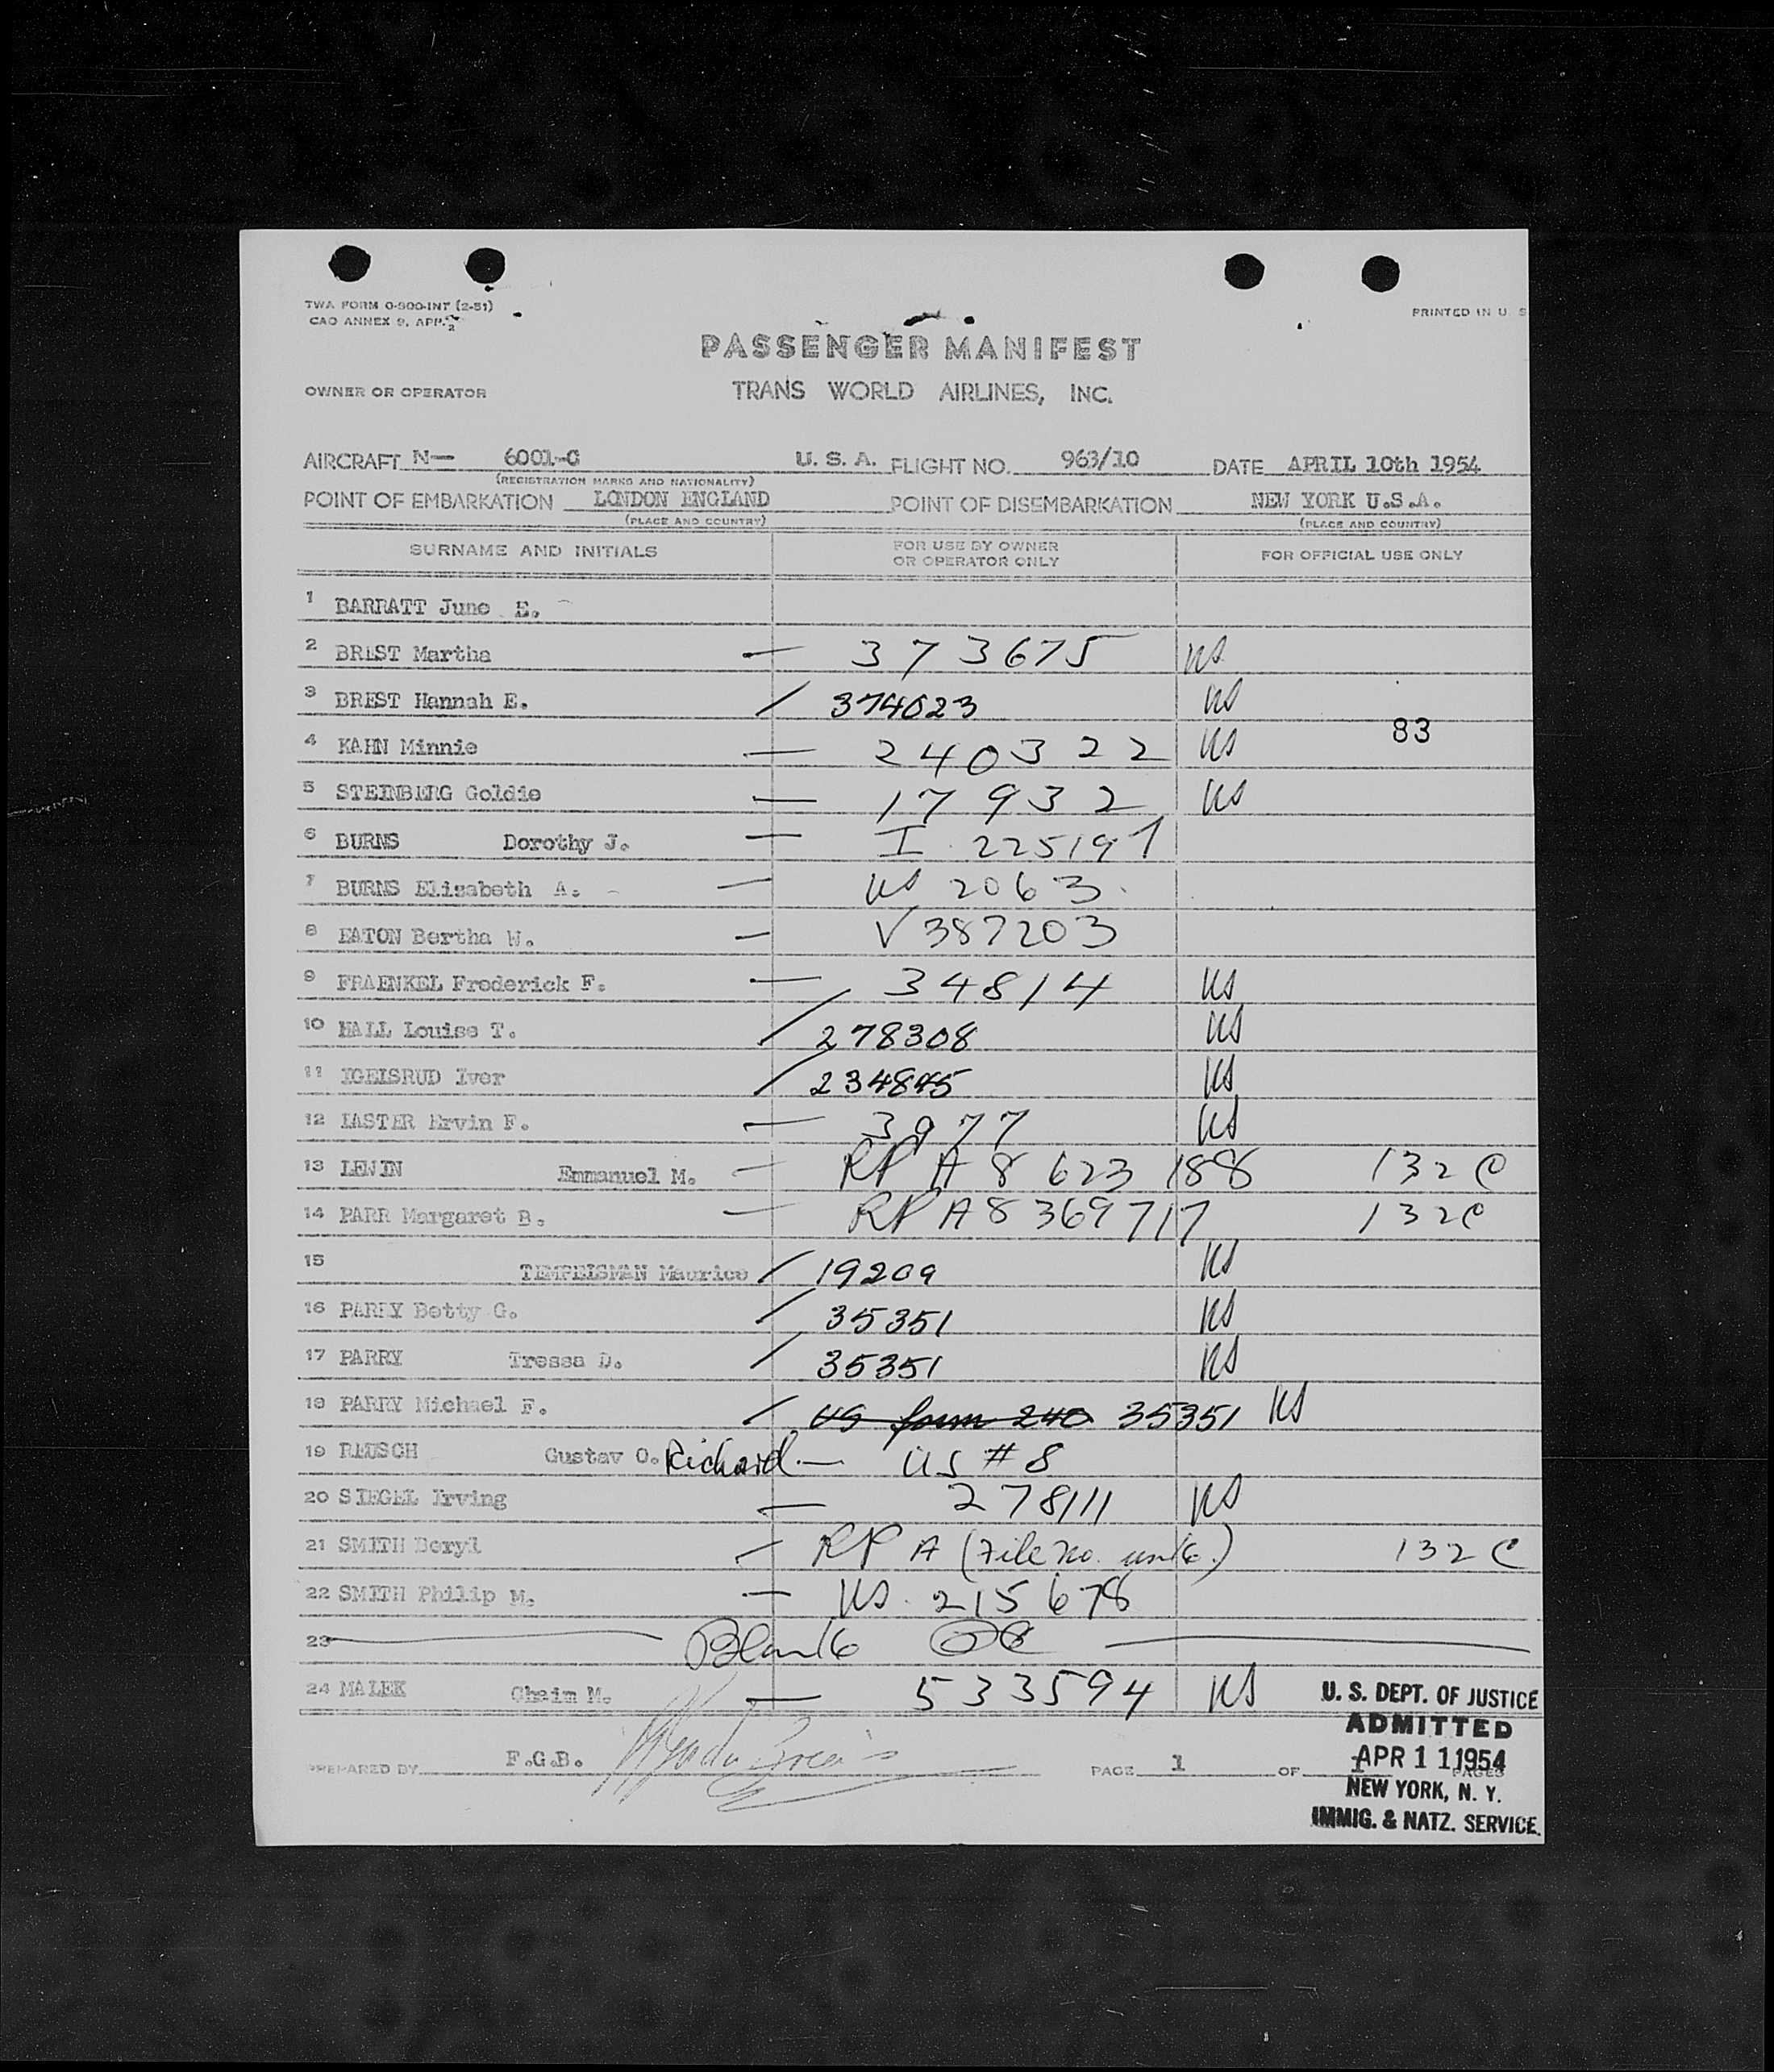 TWA FORM O-900-INT (2-51)
CAO ANNEX 9, APP. 2
PRINTED IN U S
PASSENGER MANIFEST
OWNER OR OPERATOR TRANS WORLD AIRLINES, INC.
AIRCRAFT N— 6001-C U. S. A. FLIGHT NO. 963/10 DATE APRIL 10th 1954
(REGISTRATION MARKS AND NATIONALITY)
POINT OF EMBARKATION LONDON ENGLAND POINT OF DISEMBARKATION NEW YORK U.S.A.
(PLACE AND COUNTRY) (PLACE AND COUNTRY)
SURNAME AND INITIALS FOR USE BY OWNER OR OPERATOR ONLY FOR OFFICIAL USE ONLY
1 BARRATT June E.
2 BREST Martha — 373675 US
3 BREST Hannah E. / 374023 US
83
4 KAHN Minnie — 240322 US
5 STEINBERG Goldie — 17932 US
6 BURNS Dorothy J. — I 225197
7 BURNS Elisabeth A. — US 2063
8 EATON Bertha W. — V 387203
9 FRAENKEL Frederick F. — 34814 US
10 HALL Louise T. / 278308 US
11 IGELSRUD Iver / 234845 US
12 LASTER Ervin F. — 3977 US
13 LEWIN Emmanuel M. — RP A 8 623 188 132 C
14 PARR Margaret B. — RP A8 369 717 132C
15 TEMPELSMAN Maurice / 19209 US
16 PARRY Betty G. / 35351 US
17 PARRY Tressa D. / 35351 US
18 PARRY Michael F. / US form 240 35351 US
19 REUSCH Gustav O. Richard — US # 8
20 SIEGEL Irving — 278111 US
21 SMITH Beryl — RP A (File No. unk.) 132 C
22 SMITH Philip M. — US 215678
23 Blank
24 MALEK Chaim M. — 533594 US
PREPARED BY F.G.B. PAGE 1 OF PAGES
U. S. DEPT. OF JUSTICE
ADMITTED
APR 11 1954
NEW YORK, N. Y.
IMMIG. & NATZ. SERVICE.